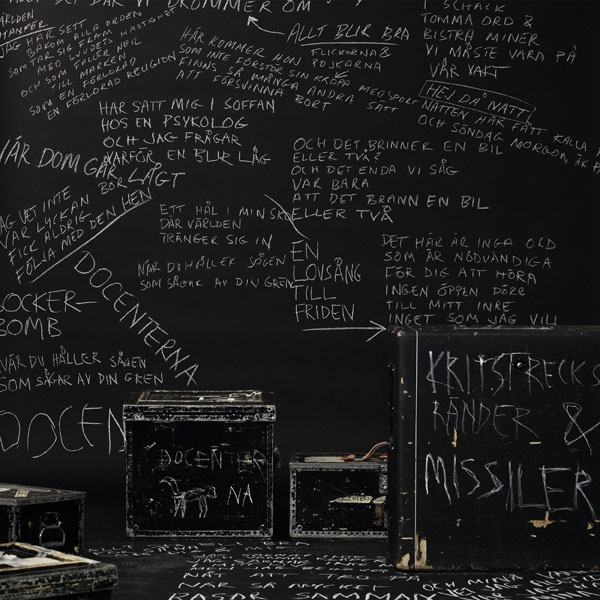 DRÖMMER OM
I SCHACK
TOMMA ORD &
BISTRA MINER
VI MÅSTE VARA PÅ
VÅR VAKT
HEJ DÅ NATT!
NATTEN HAR FÅTT KALLA
OCH SÖNDAG MORGON, ÄR PÅ
VÄRLDEN
UTANFÖR
JAG HAR SETT
BAKOM ALLA ORDEN
TAR SIG FRAM
MED LJUDETS HASTIGHET
OCH SOM PILAR NER
TILL MARKEN
EN FÖRLORAD
SOM EN FÖRLORAD RELIGION
ALLT BLIR BRA
FLICKORNA &
POJKARNA
HÄR KOMMER NÅN
SOM INTE FÖRSTÖR SIN KROPP MED SPORT
FINNS SÅ MÅNGA ANDRA SÄTT
ATT FÖRSVINNA BORT
HAR SATT MIG I SOFFAN
HOS EN PSYKOLOG
OCH JAG FRÅGAR
VARFÖR EN BLIR LÅG
NÄR DOM GÅR
BOR LÅGT
JAG VET INTE
VAR LYCKAN
FICK ALDRIG
FÖLJA MED DEN HEN
OCH DET BRINNER EN BIL
ELLER TVÅ?
OCH DET ENDA VI SÅG
VAR BARA
ATT DET BRANN EN BIL
ELLER TVÅ
ETT HÅL I MIN SKO
DÄR VÄRLDEN
TRÄNGER SIG IN
NÄR DU HÅLLER SÅGEN
SOM SÅGAR AV DIN GREN
EN
LOVSÅNG
TILL
FRIDEN
DET HÄR ÄR INGA ORD
SOM ÄR NÖDVÄNDIGA
FÖR DIG ATT HÖRA
INGEN ÖPPEN DÖRR
TILL MITT INRE
INGET SOM JAG VILL
DOCENTERNA
SOCKER-
BOMB
NÄR DU HÅLLER SÅGEN
SOM SÅGAR AV DIN GREN
DOCEN
DOCENTER
NA
KRITSTRECKS
RÄNDER &
MISSILER
NÄT ATT TRO PÅ
NÄR SÅ MYCKET
RASAR SAMMAN
OCH MINA